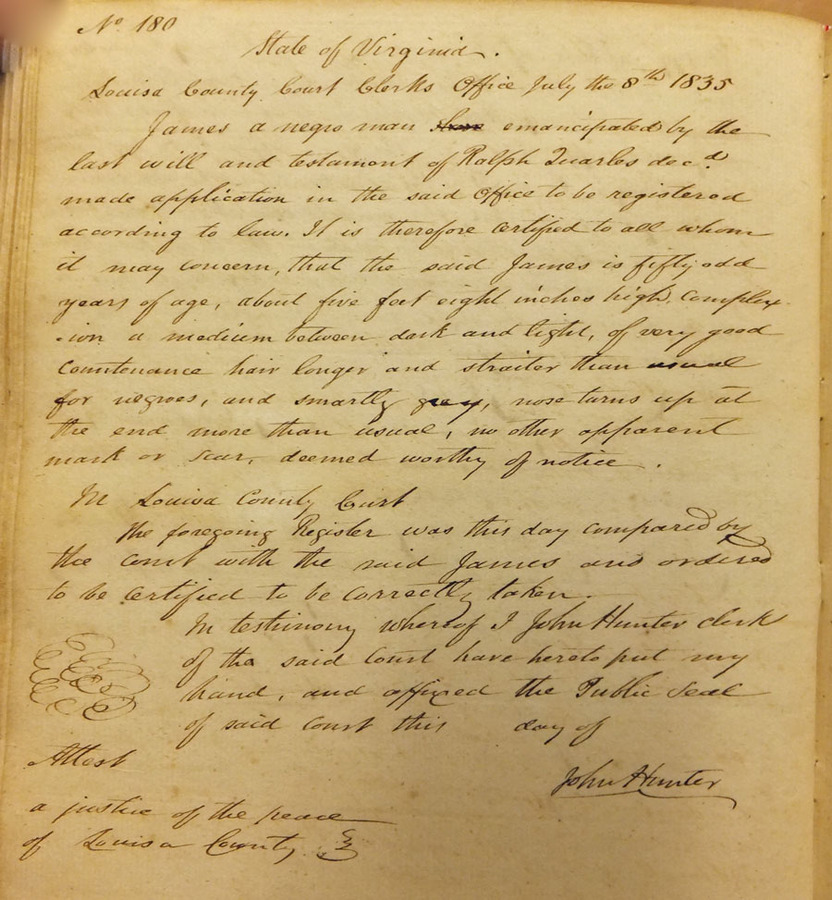 No. 180
State of Virginia.
Louisa County Court Clerks Office July the 8th 1835
James a negro man emancipated by the
last will and testament of Ralph Quarles decd.
made application in the said Office to be registered
according to law. It is therefore certified to all whom
it may concern, that the said James is fifty odd
years of age, about five feet eight inches high, complex-
-ion a medium between dark and light, of very good
countenance hair longer and straiter than usual
for negroes, and smartly grey, nose turns up at
the end more than usual, no other apparent
mark or scar, deemed worthy of notice.
In Louisa County Court
The foregoing Register was this day compared by
the court with the said James and ordered
to be certified to be correctly taken.
In testimony whereof I John Hunter clerk
of the said Court have hereto put my
hand, and affixed the Public Seal
of said court this day of
Attest
John Hunter
a justice of the peace
of Louisa County